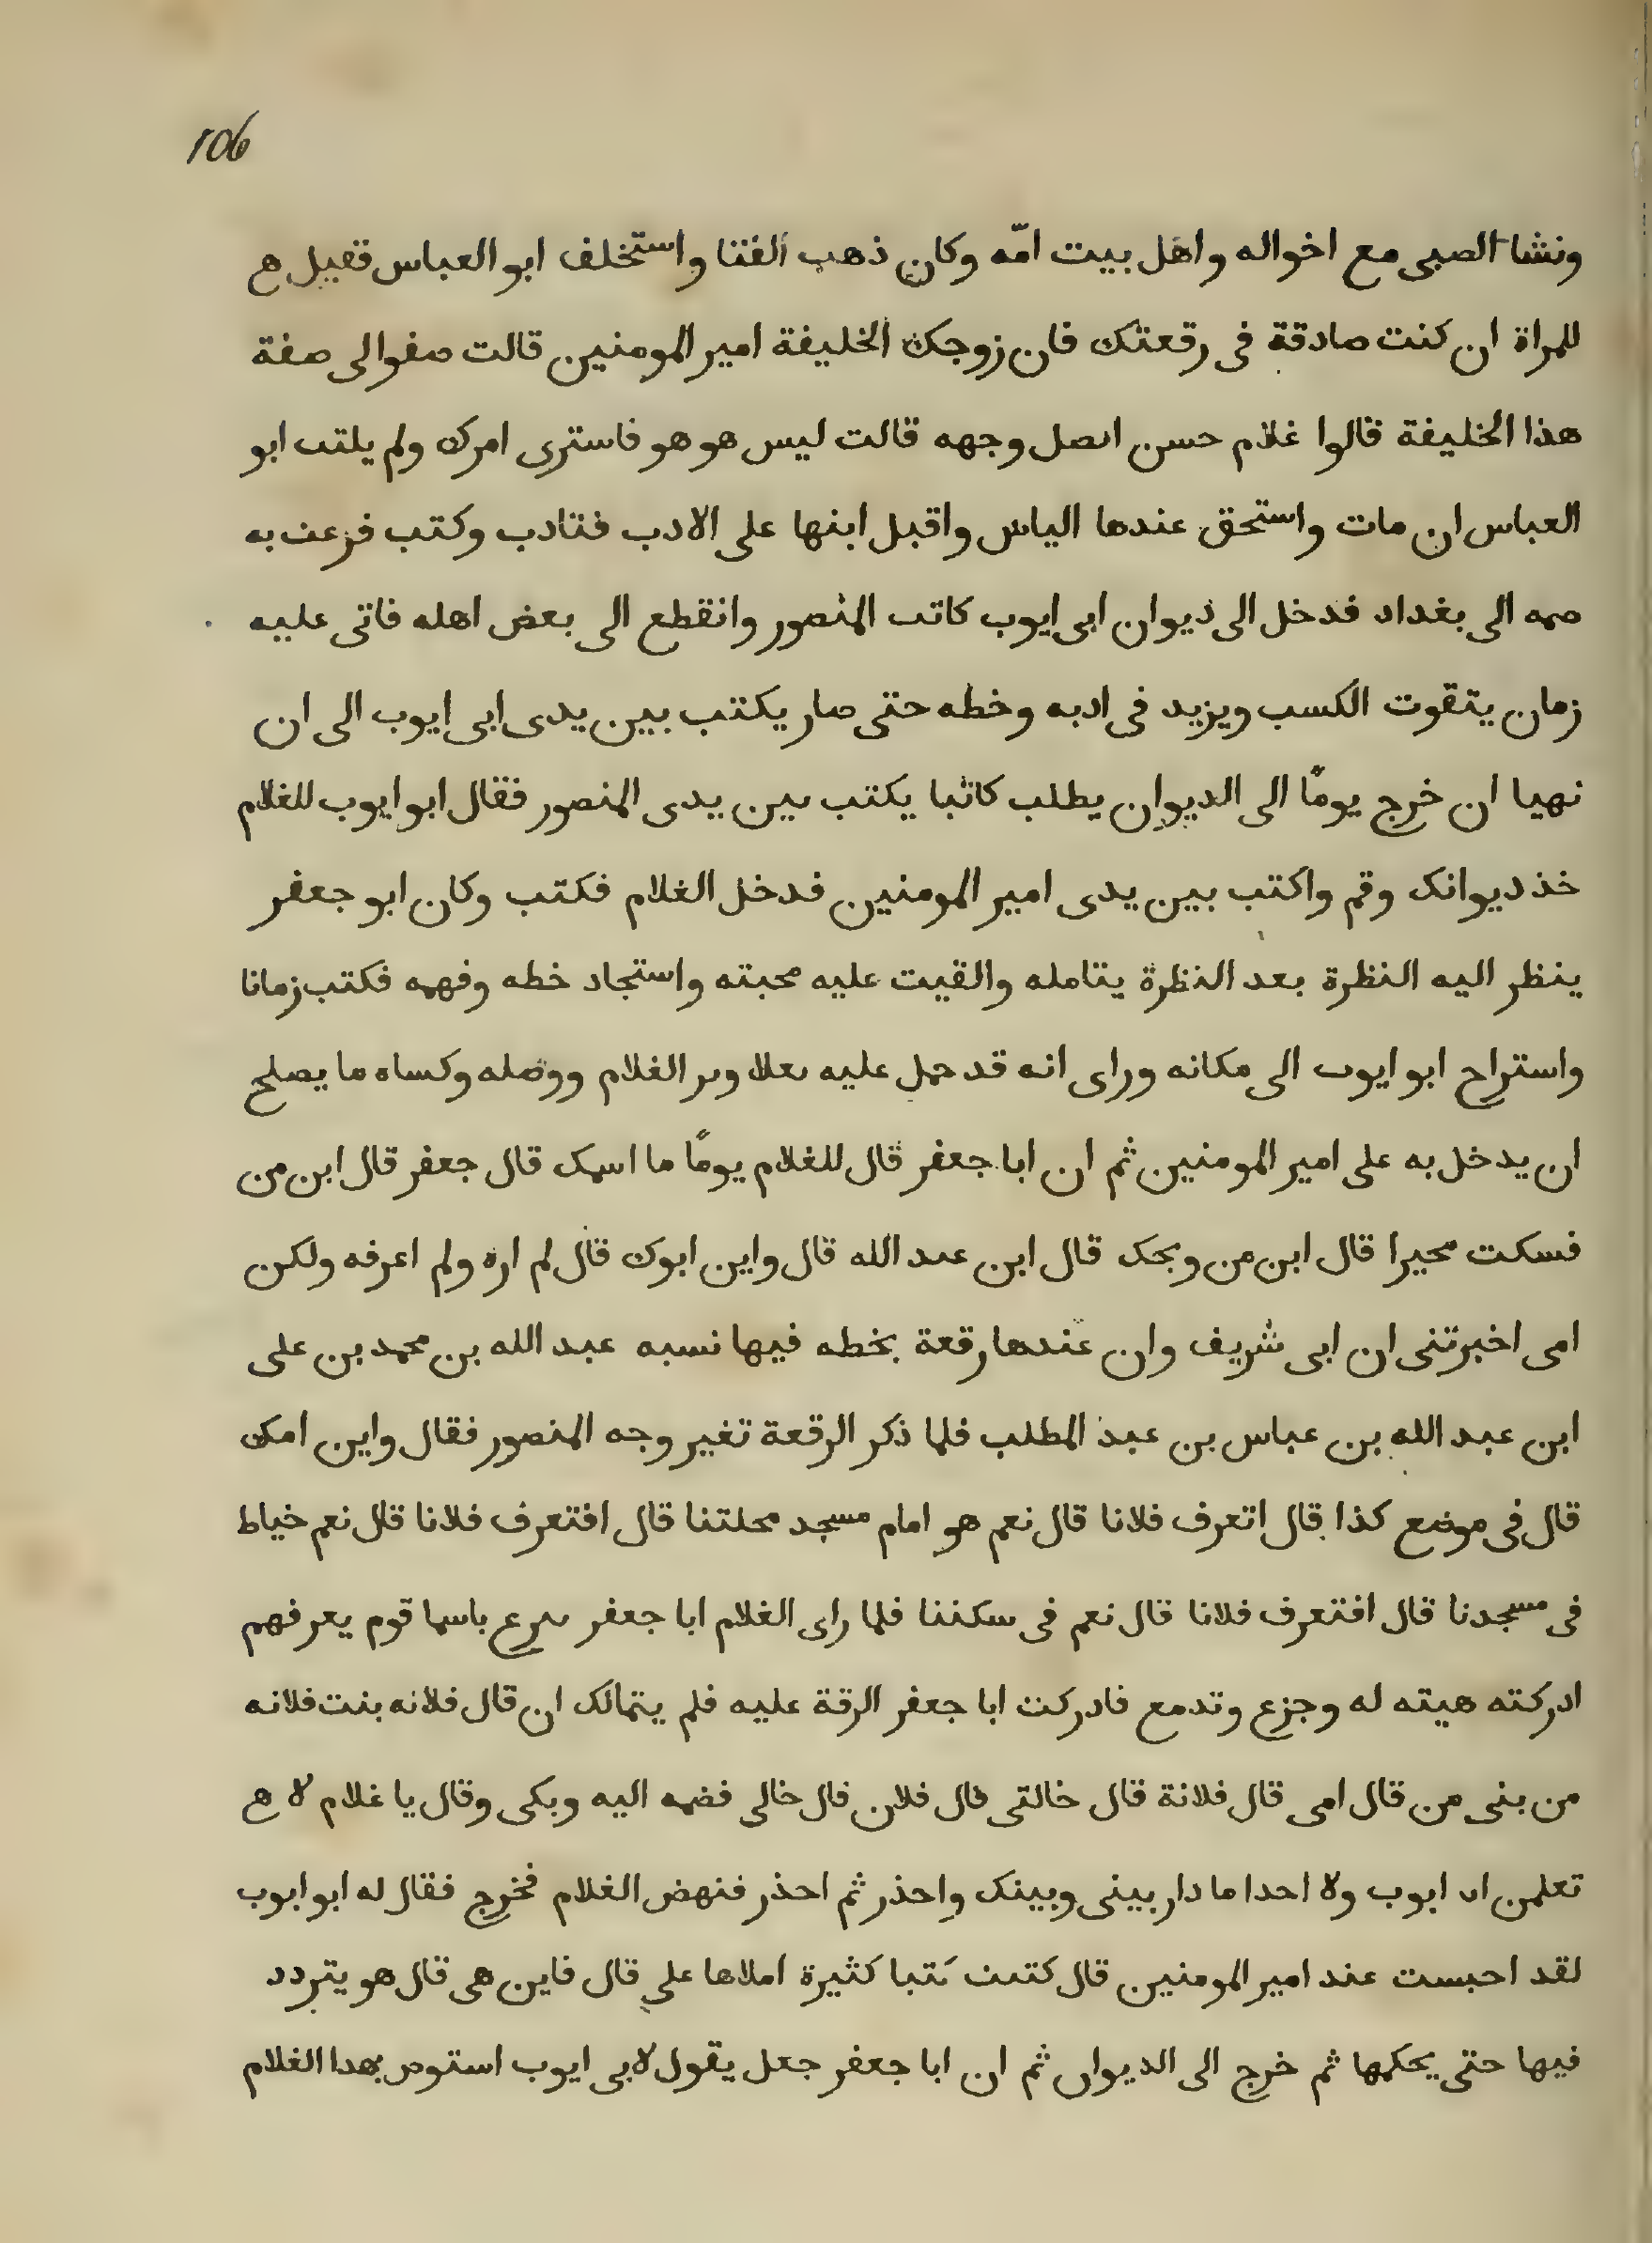 106
ونشا الصبى مع اخواله واهل بيت امّه وكان ذهب الفتنا واستخلف ابو العباس فقيل ه
للمراة ان كنت صادقة فى رقعتك فان زوجك الخليفة امير المومنين قالت صفوا لى صفة
هذا الخليفة قالوا غلام حسن اتصل وجهه قالت ليس هو هو فاسترى امرك ولم يلتب ابو
العباس ان مات واستحق عندها الياس واقبل ابنها على الادب فتادب وكتب فرعت به
صمه الى بغداد فدخل الى ديوان ابى ايوب كاتب المنصور وانقطع الى بعض اهله فاتى عليه
زمان يتقوت الكسب ويزيد فى ادبه وخطه حتى صار يكتب بين يدى ابى ايوب الى ان
تهيا ان خرج يومًا الى الديوان يطلب كاتبا يكتب بين يدى المنصور فقال ابو ايوب للغلام
خذ ديوانك وقم واكتب بين يدى امير المومنين فدخل الغلام فكتب وكان ابو جعفر
ينظر اليه النظرة بعد النظرة يتامله والقيت عليه محبته واستجاد خطه وفهمه فكتب زمانا
واستراح ابو ايوب الى مكانه وراى انه قد حمل عليه ىعلا وبر الغلام ووصله وكساه ما يصلح
ان يدخل به على امير المومنين ثم ان ابا جعفر قال للغلام يومًا ما اسمك قال جعفر قال ابن من
فسكت محيرا قال ابن من ويحك قال ابن عبد الله قال واين ابوك قال لم اره ولم اعرفه ولكن
امى اخبرتنى ان ابى شريف وان عندها رقعة بخطه فيها نسبه عبد الله بن محمد بن على
ابن عبد الله بن عباس بن عبد المطلب فلما ذكر الرقعة تغير وجه المنصور فقال واين امك
قال فى موضع كذا قال اتعرف فلانا قال نعم هو امام مسجد محلتنا قال افتعرف فلانا قال نعم خياط
فى مسجدنا قال افتعرف فلانا قال نعم فى سكننا فلما راى الغلام ابا جعفر ىىرع باسما قوم يعرفهم
ادركته هيته له وجزع وتدمع فادركت ابا جعفر الرقة عليه فلم يتمالك ان قال فلانه بنت فلانه
من بنى من قال امى قال فلانة قال خالتى قال فلان قال خالى فضمه اليه وبكى وقال يا غلام لا ه
تعلمن ابا ايوب ولا احدا ما دار بينى وبينك واحذر ثم احذر فنهض الغلام فخرج فقال له ابو ايوب
لقد احبست عند امير المومنين قال كتبت كتبا كثيرة املاها على قال فاين هى قال هو يتردد
فيها حتى يحكمها ثم خرج الى الديوان ثم ان ابا جعفر جعل يقول لابى ايوب استوص بهدا الغلام